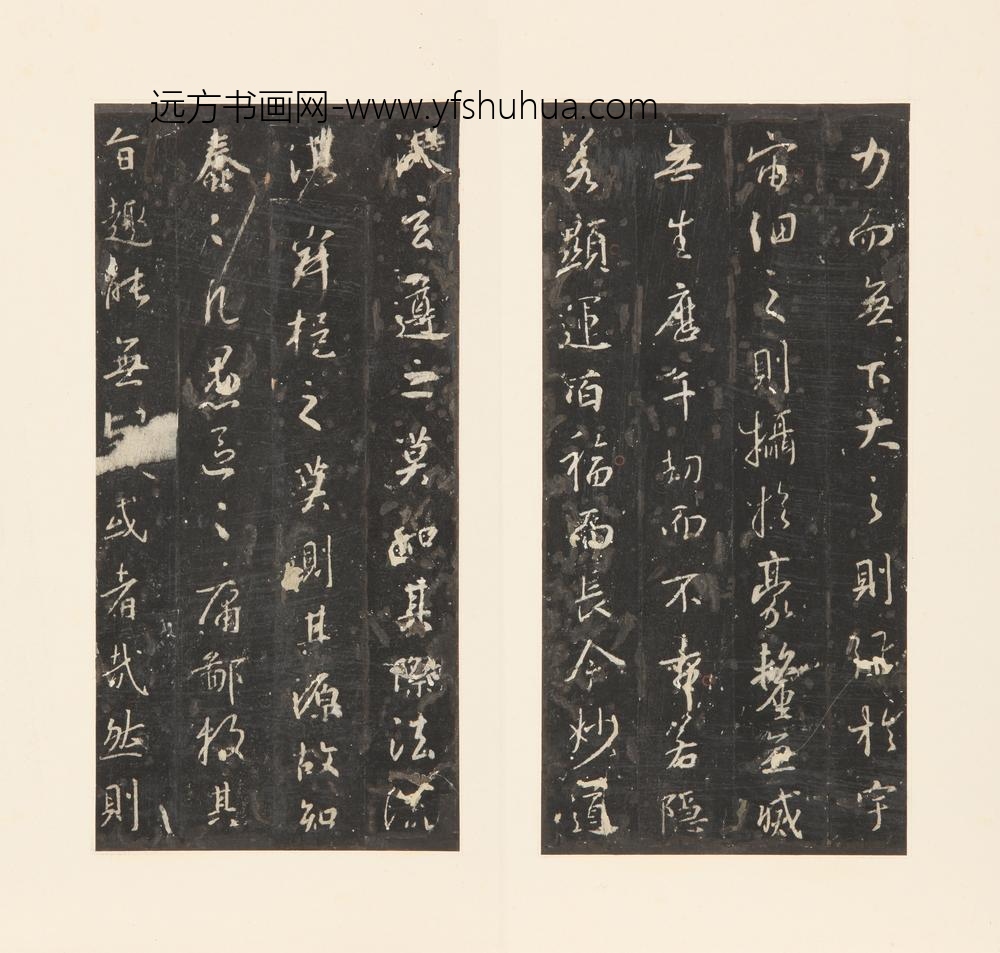 远方书画网-www.yfshuhua.com
力而無下大之則彌於宇
宙細之則攝於豪釐無滅
無生歷千劫而不古若隱
若顯運百福而長今妙道
凝玄遵之莫知其際法流
湛寂挹之莫測其源故知
蠢々凡愚區々庸鄙投其
旨趣能無或者哉然則